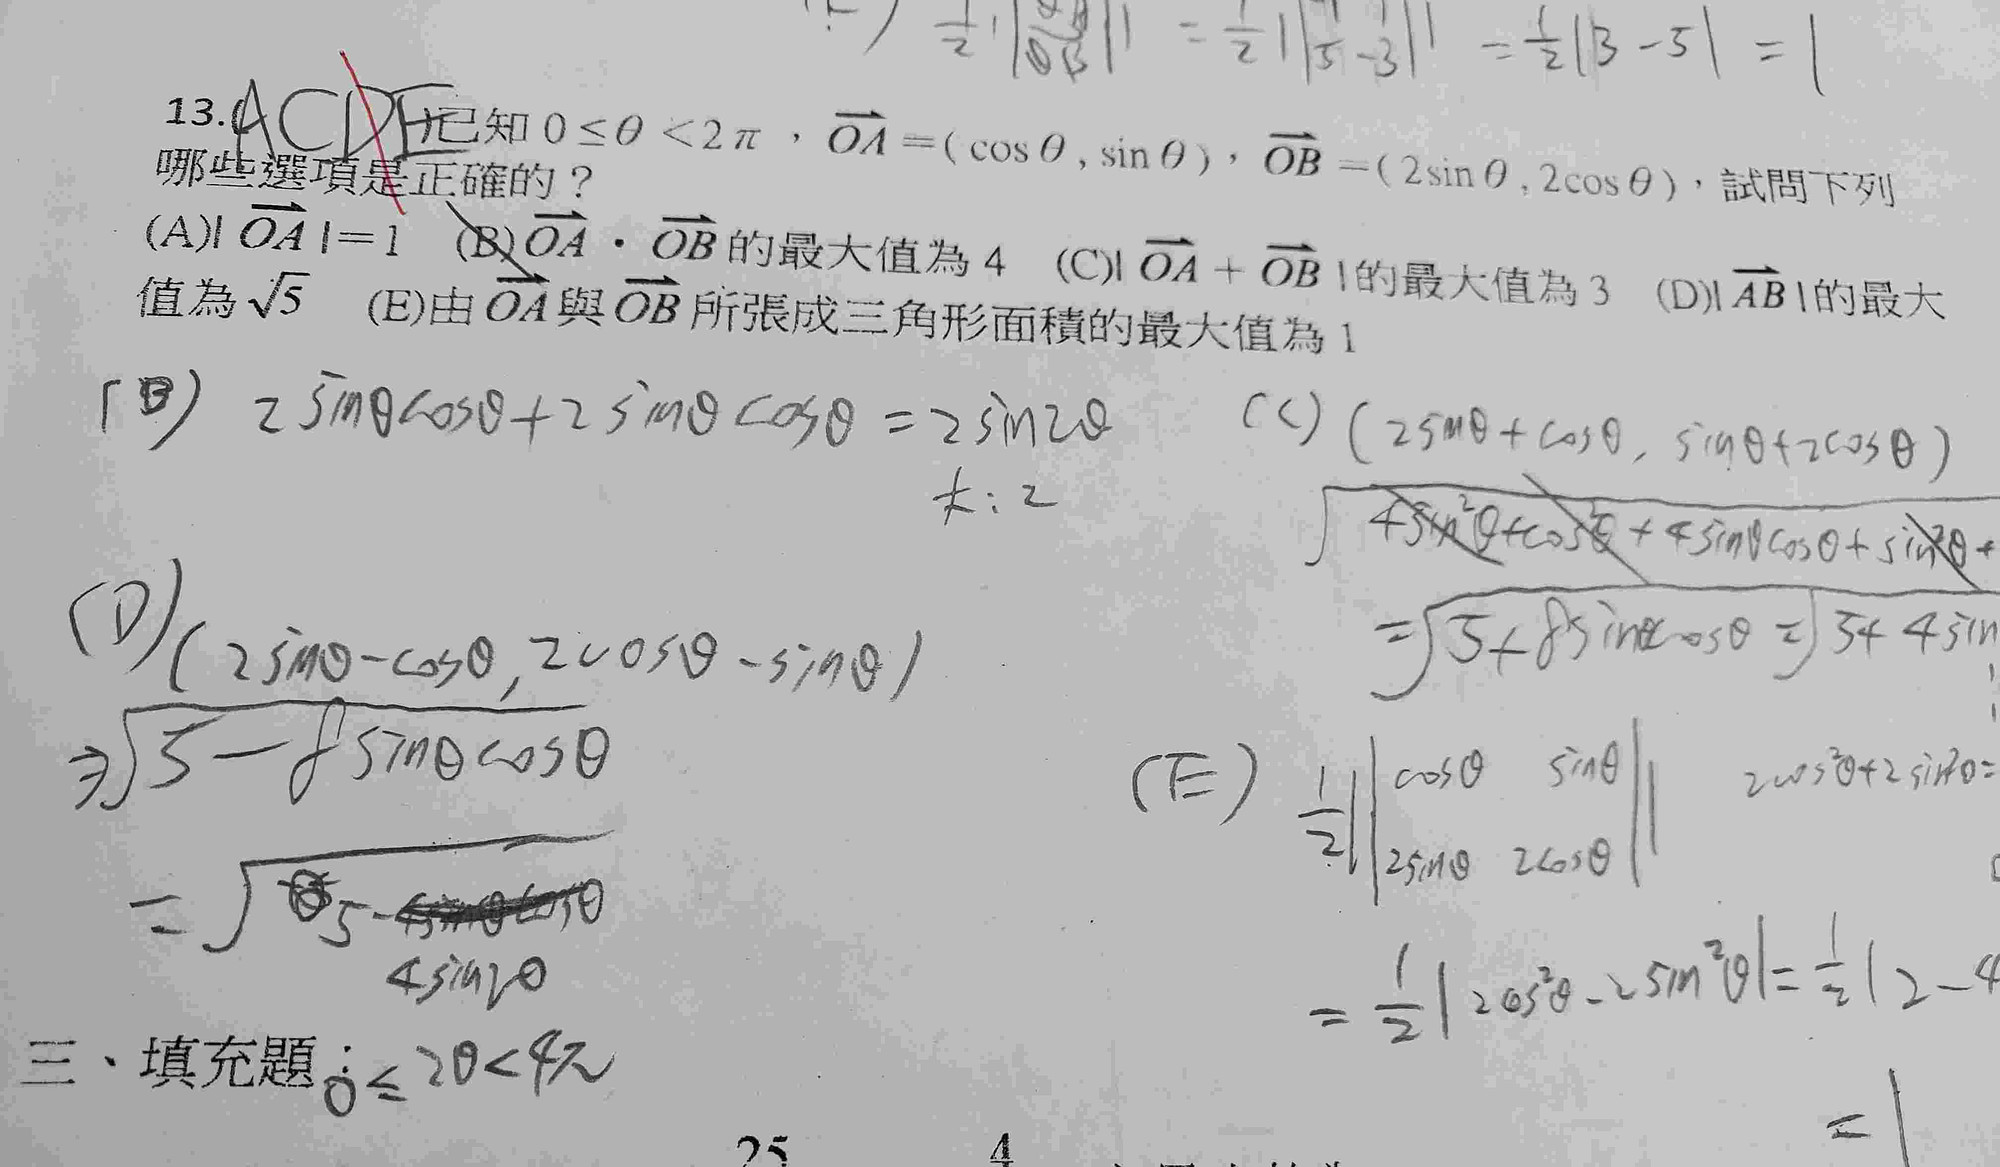 = 1/2 |3 - 5| = 1
13.(ACDE)已知 0≤θ<2π，OA=(cosθ, sinθ)，OB=(2sinθ, 2cosθ)，試問下列
哪些選項是正確的？
(A)| OA |=1 (B) OA · OB 的最大值為 4 (C)| OA + OB |的最大值為 3 (D)| AB |的最大
值為 √5 (E)由 OA 與 OB 所張成三角形面積的最大值為 1
(B) 2sinθcosθ+2sinθcosθ = 2sin2θ
大:2
(C) (2sinθ+cosθ, sinθ+2cosθ)
√4sin²θ+cos²θ+4sinθcosθ+sin²θ+
=√5+8sinθcosθ = √5+4sin
(D) (2sinθ-cosθ, 2cosθ-sinθ)
⇒√5-8sinθcosθ
=√5-
4sin2θ
(E) 1/2 || cosθ sinθ
2sinθ 2cosθ ||
2cos²θ+2sin²θ=
= 1/2 |2cos²θ-2sin²θ| = 1/2 |2-4
= 1
三、填充題：
0≤2θ<4π
25 4